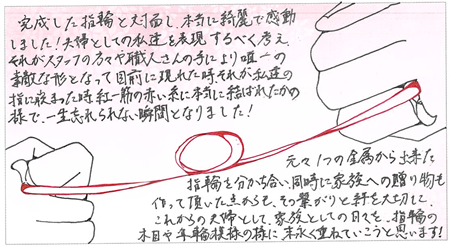 完成した指輪と対面し、本当に綺麗で感動
しました！夫婦としての私達を表現するべく考え、
それがスタッフの方々や職人さんの手により唯一の
素敵な形となって目前に現れた時それが私達の
指に嵌まった時紅一筋の赤い糸に本当に結ばれたかの
様で、一生忘れられない瞬間となりました！
元々1つの金属から出来た
指輪を分かち合い、同時に家族への贈り物も
作って頂いた点からも、その繋がりと絆を大切に、
これからの夫婦として、家族としての日々を、指輪の
木目や年輪模様の様に末永く重ねていこうと思います！